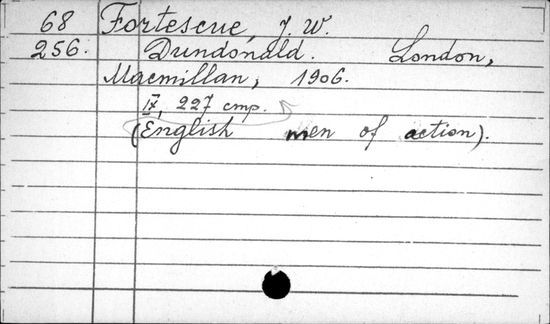 68 Fortescue, J. W.
256. Dundonald. London,
Macmillan, 1906.
IV, 227 стр.
(English men of action).